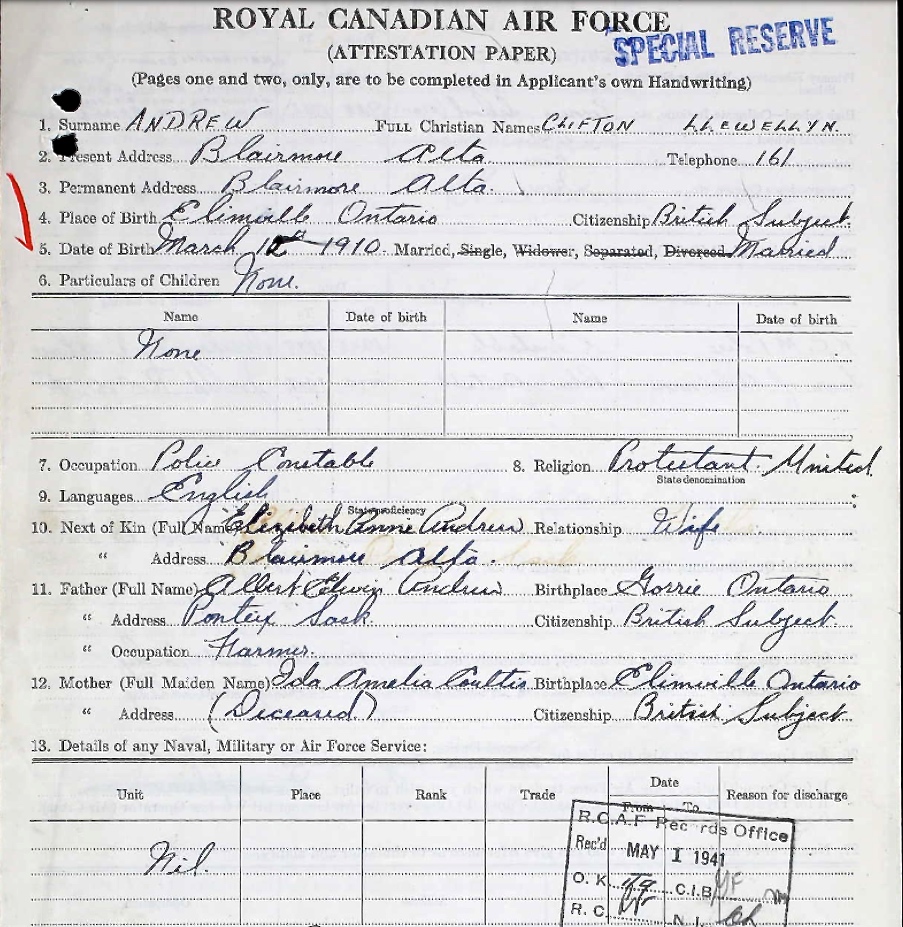 ROYAL CANADIAN AIR FORCE
(ATTESTATION PAPER)
SPECIAL RESERVE
(Pages one and two, only, are to be completed in Applicant's own Handwriting)
1. Surname ANDREW FULL Christian Names CLIFTON LLEWELLYN.
2. Present Address Blairmore Alta Telephone 161
3. Permanent Address Blairmore Alta.
4. Place of Birth Elimville Ontario Citizenship British Subject
5. Date of Birth March 1910. Married, Single, Widower, Separated, Divorced Married
6. Particulars of Children None.
Name Date of birth Name Date of birth
None
7. Occupation Police Constable 8. Religion Protestant. United
State denomination
9. Languages English
State proficiency
10. Next of Kin (Full Name) Elizibeth Anne Andrew Relationship Wife
" Address Blairmore Alta.
11. Father (Full Name) Albert Edwin Andrew Birthplace Gorrie Ontario
" Address Ponteix Sask. Citizenship British Subject.
" Occupation Farmer.
12. Mother (Full Maiden Name) Ida Amelia Coultis Birthplace Elimville Ontario
" Address (Deceased.) Citizenship British Subject.
13. Details of any Naval, Military or Air Force Service:
Unit Place Rank Trade Date Reason for discharge
From To
Nil.
R.C.A.F Records Office
Rec'd MAY 1 1941
O.K. C.I.B.
R.C. N.